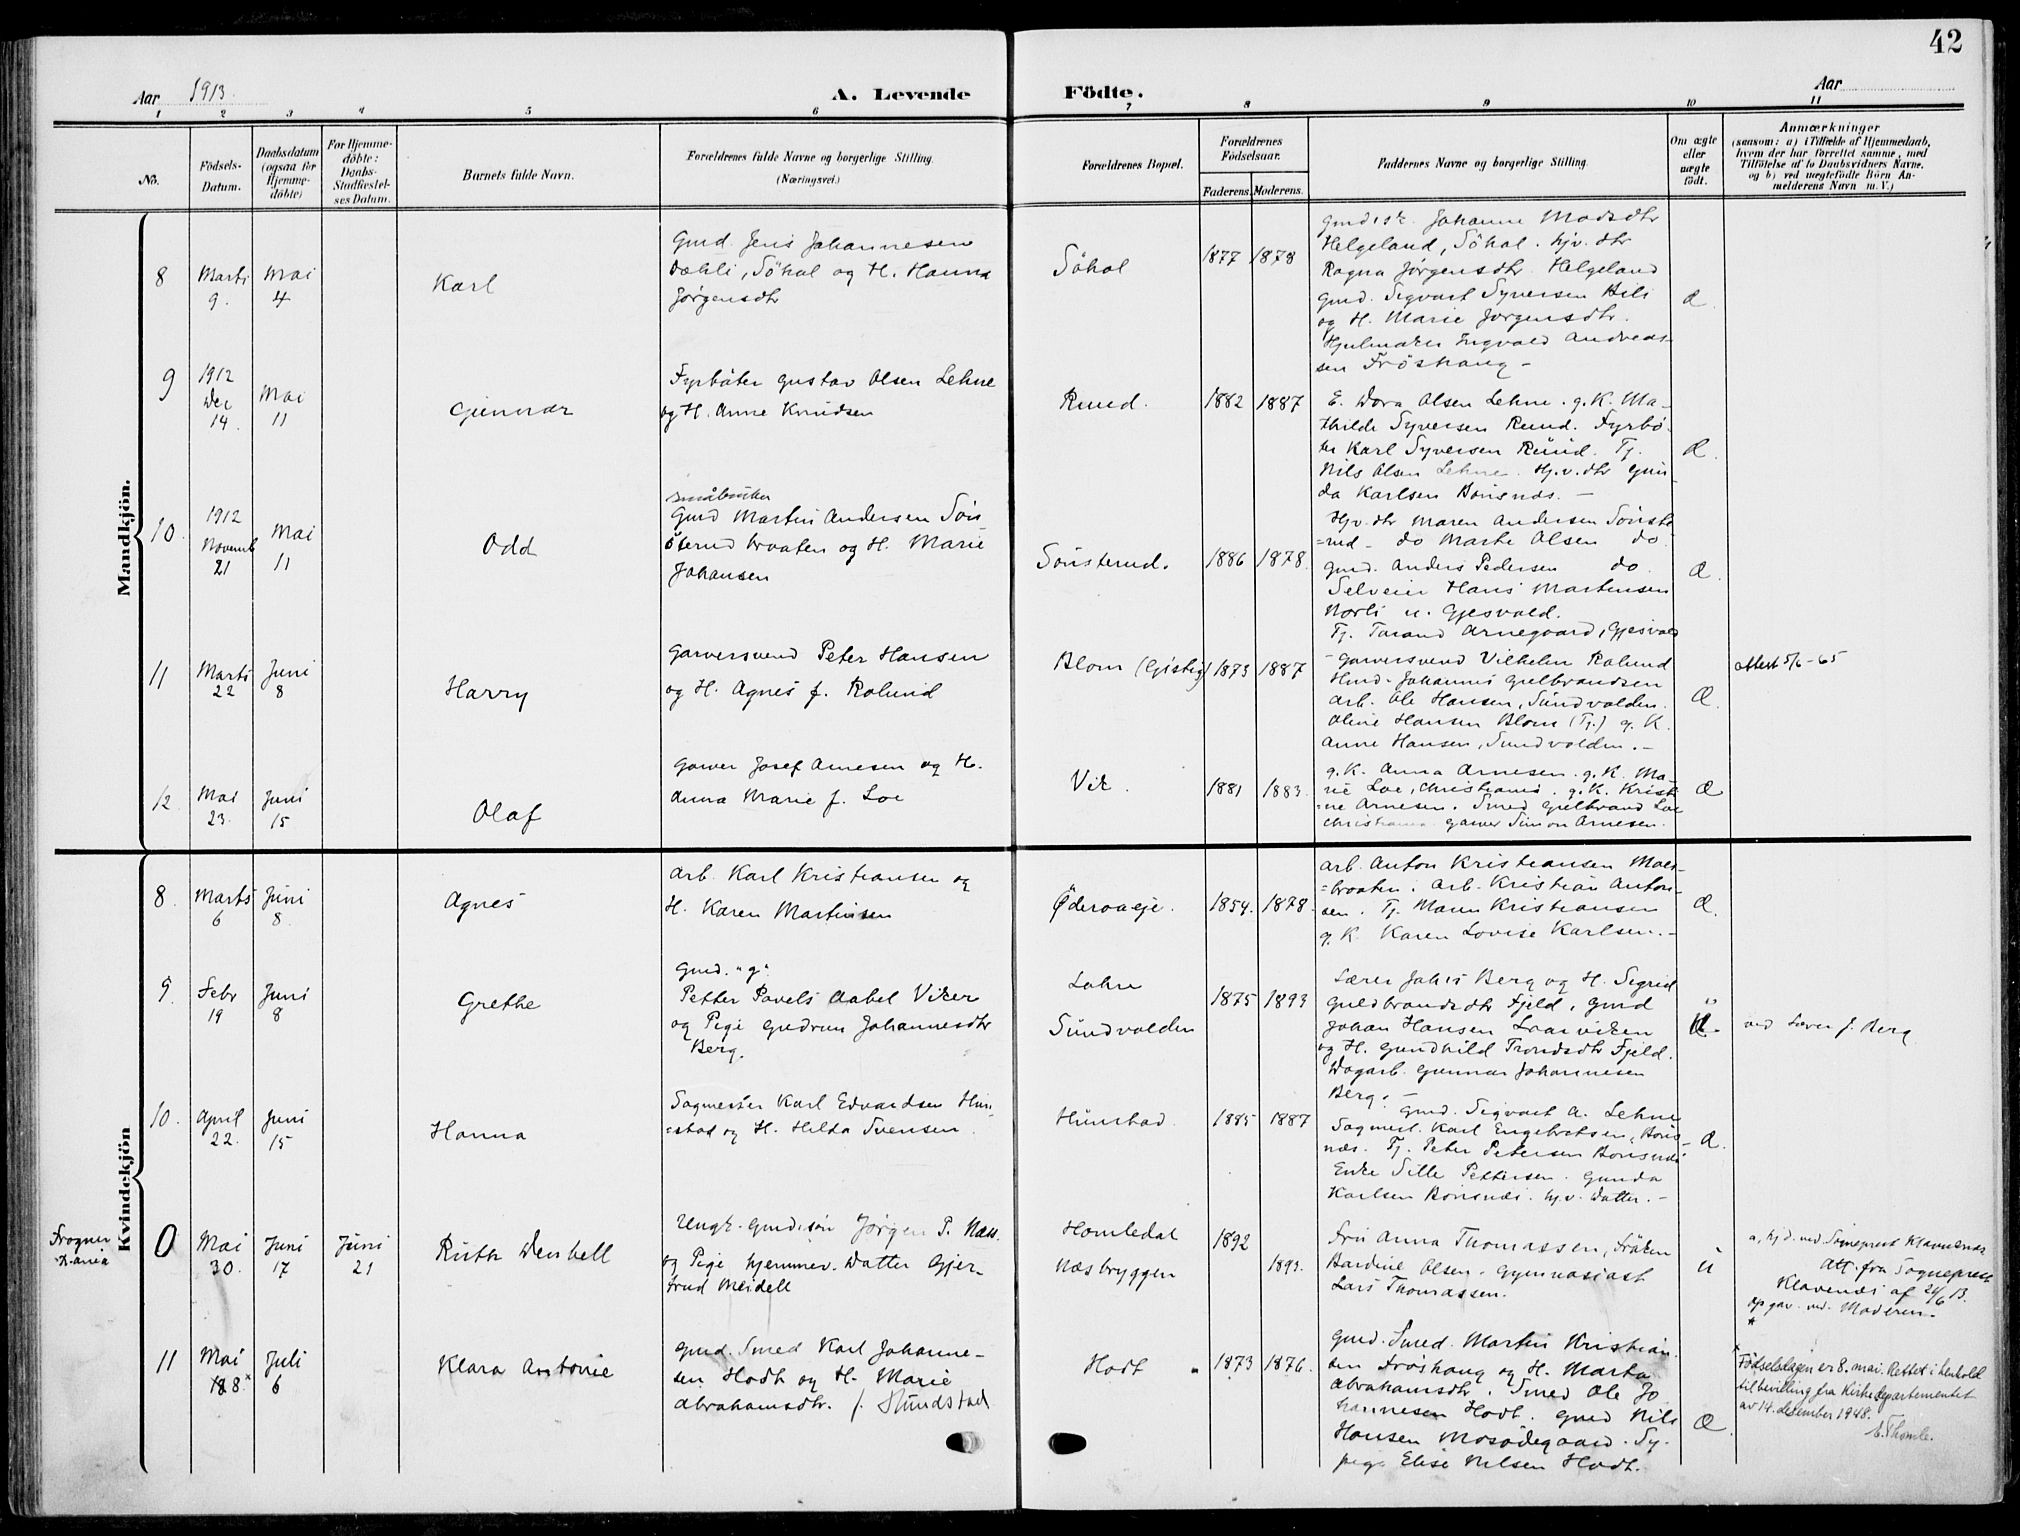 42
Aar 1913.
A. Levende
Födte.
Aar
1 2 3 4 5 6 7 8 9 10 11
No.
Födsels-
Datum.
Daabsdatum
(ogsaa for
Hjemme-
døbte)
For Hjemme-
døbte:
Daabs-
Stadfæstel-
ses Datum.
Barnets fulde Navn.
Forældrenes fulde Navne og borgerlige Stilling.
(Næringsvei.)
Forældrenes Bopæl.
Forældrenes
Födselsaar.
Faderens. Moderens.
Faddernes Navne og borgerlige Stilling.
Om ægte
eller
uægte
födt.
Anmærkninger
(saasom: a) i Tilfælde af Hjemmedaab,
hvem der har forrettet samme, med
Tilföielse af to Daabsvidners Navne,
og b) ved uægtefödte Börn An-
melderens Navn m. V.)
Mandkjön.
8
Marts
9.
Mai
4
Karl
Gmd. Jens Johannesen
Dæhli, Söhol og H. Hanna
Jørgensdtr
Söhol
1877 1878
Gmdsk. Johanne Madsdtr
Helgeland, Söhol. hjv. dtr
Ragna Jørgensdtr. Helgeland
Gmd. Sigvart Syversen Bili
og H. Marie Jørgensdtr.
Hjulmaker Ingvald Andreas-
sen Fröshaug –
Æ.
9
1912
Dec
14.
Mai
11
Gunnar
Fyrböter Gustav Olsen Lehne
og H. Anne Knudsen
Rund.
1882 1887
E. Dora Olsen Lehne. g. K. Ma-
thilde Syversen Rund. Fyrbö-
ter Karl Syversen Rund. Tj.
Nils Olsen Lehne. Hj.v.dtr Gun-
da Karlsen Bönsnæs. –
Æ.
10.
1912
Novemb
21
Mai
11
Odd
småbruker
Gmd Martin Andersen Söns-
terud braaten og H. Marie
Johansen
Sönsterud.
1886 1878.
Hjv. dtr Maren Andersen Sönste
=rud – do Marte Olsen do.
gmd. Anders Pedersen do
Selveier Hans Martinsen
Norli u. Gjesvald.
Tj. Tarand Arnegaard, Gjesvald
Æ.
11
Marts
22
Juni
8
Harry
Garversvend Peter Hansen
og H. Agnes f. Rolund
Blom (Gistig)
1873 1887
– Garversvend Vilhelm Rolund
Hmd. Johannes Gulbrandsen
Arb. Ole Hansen, Sundvolden.
Oline Hansen Blom (Tj.) g. K.
Anne Hansen, Sundvolden. –
Æ.
Attest 5/6-65
12.
Mai
23.
Juni
15
Olaf
Garver Josef Arnesen og H.
Anna Marie f. Loe
Vik.
1881 1883.
g. K. Anna Arnesen. g. K. Ma-
rie Loe, Christiania. g. K. Kristi
=ne Arnesen. Smed Gulbrand Loe
Christiania. Garver Simon Arnesen.
Æ
Kvindekjön
8.
Marts
6
Juni
8.
Agnes
Arb. Karl Kristiansen og
H. Karen Martinsen
Øderaaeje.
1854. 1878.
Arb. Anton Kristiansen Moes-
=braaten. Arb. Kristian Anton-
sen. Tj. Maren Kristiansen
g. K. Karen Lovise Karlsen. –
Æ.
9.
Febr
19
Juni
8
Grethe
Gmd. "g".
Petter Povels Aabel Viker
og Pige Gudrun Johannesdtr
Berg.
Lohre
Sundvolden
1875 1893
Lærer Johs Berg og H. Sigrid
Guldbrandsdtr Fjeld, gmd
Johan Hansen Loreviken
og H. Gundhild Trondsdtr Fjeld.
Dagarb. Gunnar Johannesen
Berg. –
ü
ved Lærer J. Berg
10.
April
22.
Juni
15
Hanna
Sagmester Karl Edvardsen Hun-
=stad og H. Hilda Svensen.
Hunstad.
1885 1887
Gmd. Sigvart A. Lehne
Sagmest. Karl Engebretsen, Böns-
næs. Tj. Peter Petersen Bönsnæs
Enke Sille Pettersen. Gunda
Karlsen Bönsnæs. hj.v. Datter. –
Æ.
Frogner
K.ania
0
Mai
30.
Juni
17
Juni
21
Ruth Wenbell
Ungk. gmdssön Jørgen P. Næss.
og Pige hjemmev. Datter Gjer-
trud Meidell
Homledal
Næsbryggen
1892
1893.
Fru Anna Thomassen, Fröken
Bardine Olsen. Gymnasiast
Lars Thomassen.
u
a, hj.d. ved Sogneprest Klavenæs
Att. fra Sogneprest
Klavenæs af 24/6 13.
opgav. ved. Moderen. –
*
11
Mai
18 8*
Juli
6
Klara Antonie
Gmd. Smed Karl Johanne-
sen Hodt og H. Marie
Abrahamsdtr. f. Hundstad
Hodt
1873 1876.
Gmd. Smed. Martin Kristian-
sen Fröshaug og H. Marta
Abrahamsdtr. Smed Ole Jo
hannesen Hodt. Gmd Nils
Hansen Mosödegaard. Sy-
pige Elise Nilsen Hodt.
Æ.
* Födselsdagen er 8. mai. Rettet i henhold
til bevilling fra Kirkedepartementet
av 14. desember 1948.
E. Thomle.